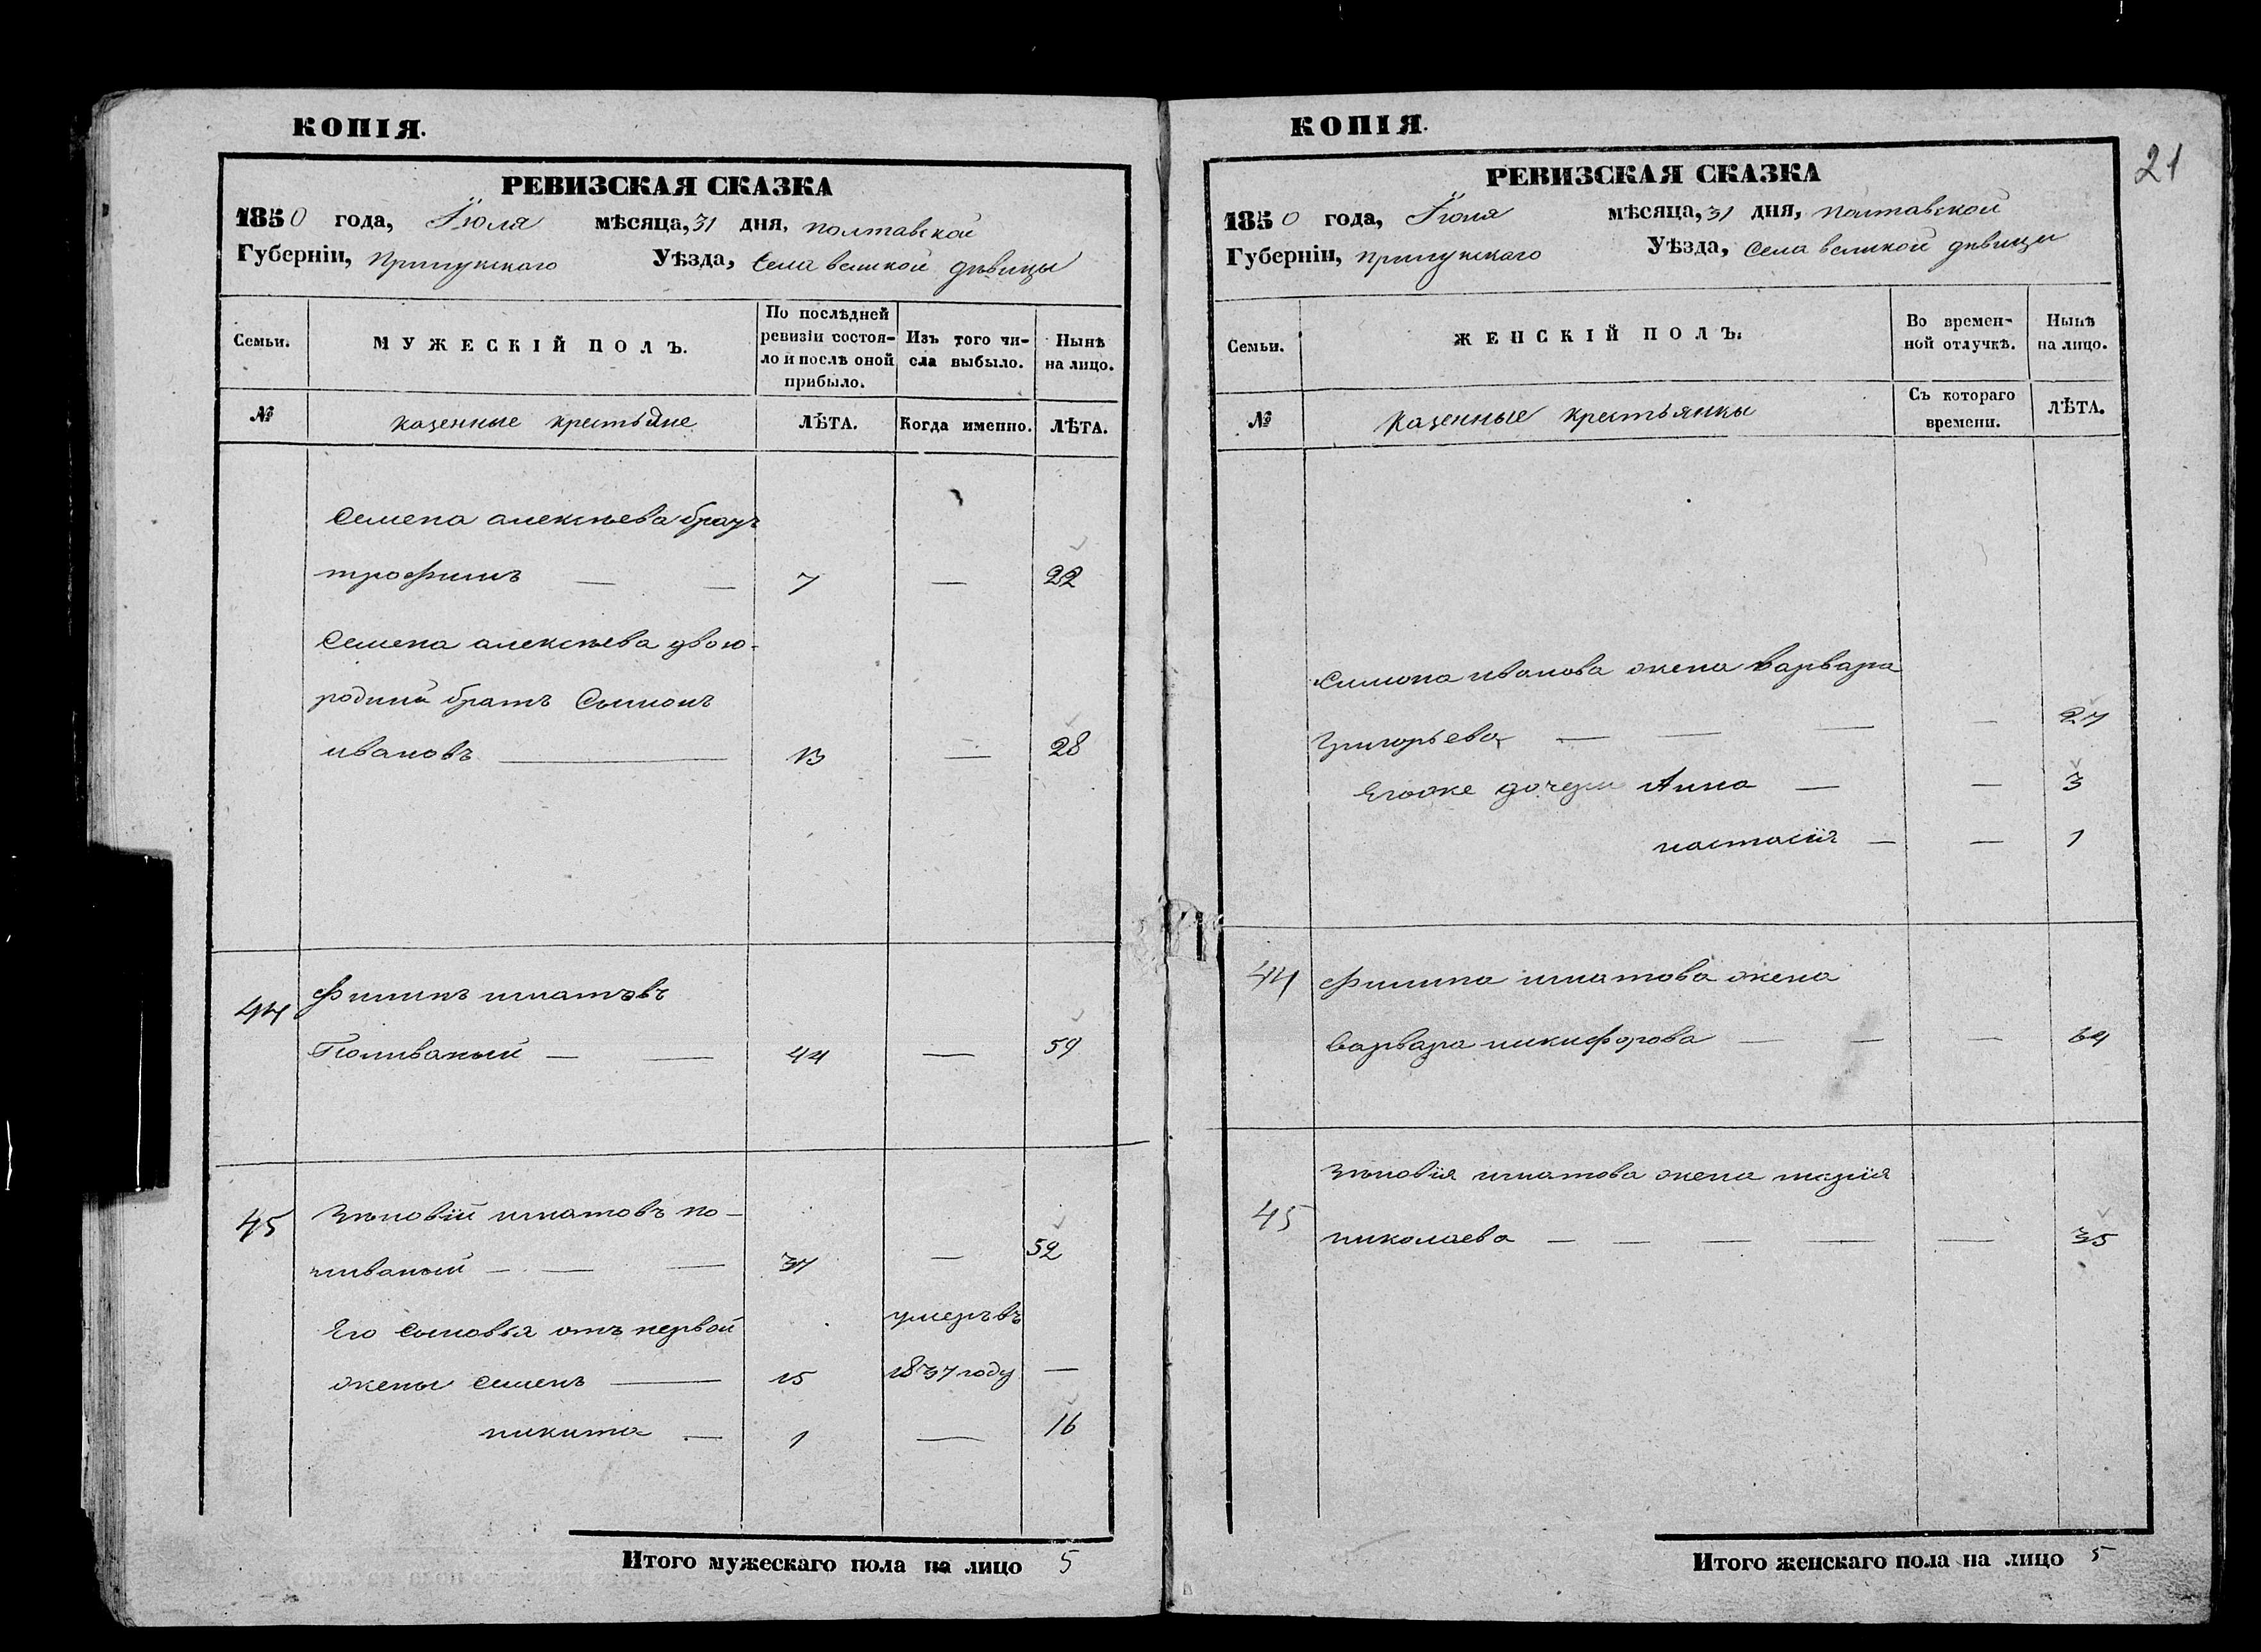 КОПІЯ.
РЕВИЗСКАЯ СКАЗКА
1850 года, Іюля мѣсяца, 31 дня, полтавской
Губерніи, Прилукскаго Уѣзда, села великой дѣвицы
Семьи.
МУЖЕСКІЙ ПОЛЪ.
По послѣдней ревизіи состоя-ло и послѣ оной прибыло.
Изъ того чи-сла выбыло.
Нынѣ на лицо.
№
казенные крестьяне
ЛѢТА.
Когда именно.
ЛѢТА.
Семена алексѣева братъ
трофимъ — — 7 — 22
Семена алексѣева двою-
родный братъ Симонъ
ивановъ — 13 — 28
44 Филипъ игнатовъ
44 — 59
45 Зѣновій игнатовъ по-
чиваный — — — 37 — 52
Его сыновья отъ первой умеръ въ
жены семенъ — 15 1837 году —
никита — 1 — 16
Итого мужескаго пола на лицо 5
КОПІЯ.
21
РЕВИЗСКАЯ СКАЗКА
1850 года, Іюля мѣсяца, 31 дня, полтавской
Губерніи, прилукскаго Уѣзда, села великой дѣвицы
Семьи.
ЖЕНСКІЙ ПОЛЪ.
Во времен-ной отлучкѣ.
Нынѣ на лицо.
№
казенные крестьянки
Съ котораго времени.
ЛѢТА.
Симона иванова жена варвара
Григорьева — — — — 27
Его же дочери Анна — — 3
настасія — — 1
44 Филипа игнатова жена
варвара никифорова — — — 64
45 Зѣновія игнатова жена
николаева — — — — — 35
Итого женскаго пола на лицо 5